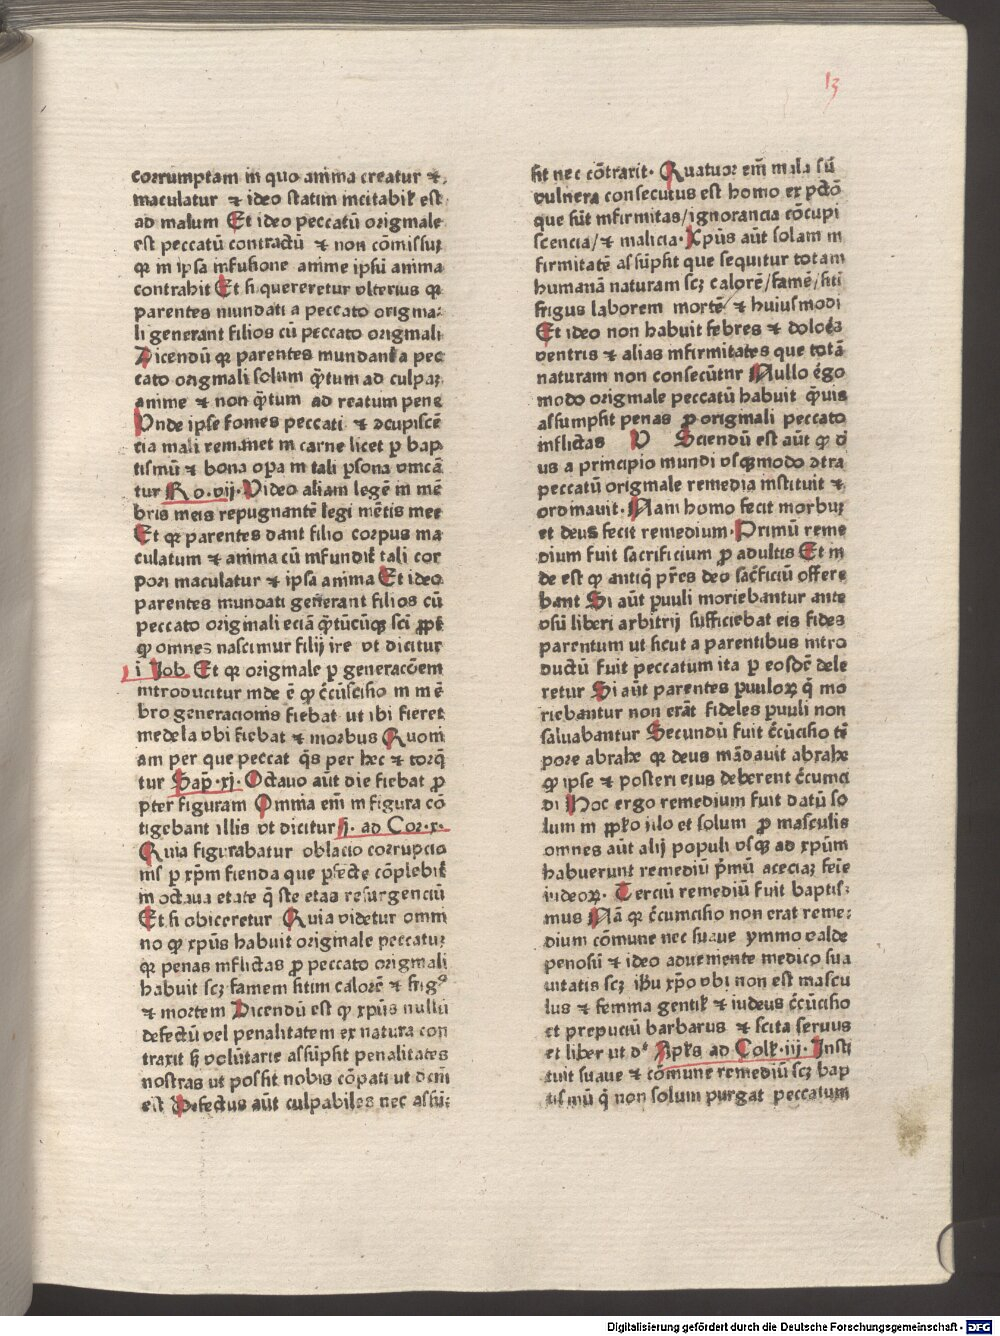 13
corrumptam in quo anima creatur ⁊
maculatur ⁊ ideo statim incitabil̄ est
ad malum Et ideo peccatū originale
est peccatū contractū ⁊ non cōmissuꝫ
qꝛ in ipsa infusione anime ipsū anima
contrahit Et si quereretur vlterius qꝛ
parentes mundati a peccato origina⸗
li generant filios cū peccato originali
Dicendū qꝛ parentes mundant̄ a pec
cato originali solum q̄tum ad culpaꝫ
anime ⁊ non q̄tum ad reatum pene
Vnde ipse fomes peccati ⁊ ꝯcupiscē
cia mali remanet in carne licet ꝑ bap
tismū ⁊ bona oꝑa in tali ꝑsona vincā
tur Ro·vij· Video aliam legē in mē
bris meis repugnantē legi mētis mee
Et qꝛ parentes dant filio corpus ma
culatum ⁊ anima cū infundit̄ tali cor
pori maculatur ⁊ ipsa anima Et ideo
parentes mundati generant filios cū
peccato originali eciā q̄tūcūqꝫ sci ꝓpt̄
ꝙ omnes nascimur filij ire vt dicitur
i Job. Et qꝛ originale ꝑ generacōem
introducitur inde ē ꝙ c̄cūscisio in mē
bro generacionis fiebat ut ibi fieret
medela vbi fiebat ⁊ morbus Quoni
am per que peccat q̄s per hec ⁊ torq̄
tur Sap̄·xj· Octauo aūt die fiebat ꝓ
pter figuram Omnia em̄ in figura cō
tigebant illis vt dicitur j. ad Cor·x·
Quia figurabatur oblacio corrupcio
nis ꝑ xp̄m fienda que ꝑfecte cōplebit̄
in octaua etate q̄ ste etas resurgenciū
Et si obiceretur Quia videtur omni
no ꝙ xpūs habuit originale peccatuꝫ
qꝛ penas inflictas ꝓ peccato originali
habuit scꝫ famem sitim calorē ⁊ frigꝰ
⁊ mortem Dicendū est ꝙ xpūs nullū
defectū vel penalitatem ex natura con
traxit sꝫ volūtarie assūpsit penalitates
nostras ut possit nobis cōpati ut dcm̄
est Defectus aūt culpabiles nec assū⸗
sit nec cōtraxit· Quatuor em̄ mala sū
vulnera consecutus est homo ex pctō
que sūt infirmitas/ignorancia cōcupi
scencia/⁊ malicia· Xpūs aūt solam in
firmitatē assūpsit que sequitur totam
humanā naturam scꝫ calorē/famē/siti
frigus laborem mortē/⁊ huiusmodi
Et ideo non habuit febres ⁊ dolora
ventris ⁊ alias infirmitates que totā
naturam non consecūtur Nullo ergo
modo originale peccatū habuit q̄uis
assumpsit penas ꝓ originali peccato
inflictas V Sciendū est aūt ꝙ d̄
us a principio mundi vsqꝫmodo ꝯtra
peccatū originale remedia instituit ⁊
ordinauit· Nam homo fecit morbuꝫ
et deus fecit remedium· Primū reme
dium fuit sacrificium ꝓ adultis Et in
de est ꝙ antiq̄ pr̄es deo sac̄ficiū offere
bant Si aūt ꝑuuli moriebantur ante
vsū liberi arbitrij sufficiebat eis fides
parentum ut sicut a parentibus intro
ductū fuit peccatum ita ꝑ eosdē dele
retur Si aūt parentes ꝑuuloꝝ q̄ mo
riebantur non erāt fideles ꝑuuli non
saluabantur Secundū fuit c̄cūcisio tē
pore abrahe qꝛ deus mādauit abrahe
ꝙ ipse ⁊ posteri eius deberent c̄cumci
di Hoc ergo remedium fuit datū so
lum in ꝓpl̄o illo et solum ꝓ masculis
omnes aūt alij populi vsqꝫ ad xpūm
habuerunt remediū p̄mū aceciaꝫ feīe
iudeoꝝ. Terciū remediū fuit baptis⸗
mus Nā qꝛ c̄cumcisio non erat reme⸗
dium cōmune nec suaue ymmo valde
penosū ⁊ ideo adueniente medico sua
uitatis scꝫ ihū xp̄o vbi non est mascu
lus ⁊ femina gentil̄ ⁊ iudeus c̄cūcisio
et prepuciū barbarus ⁊ scita seruus
et liber ut dꝛ Apl̄s ad Coll̄·iij· Insti
tuit suaue ⁊ cōmune remediū scꝫ bap
tismū q̄ non solum purgat peccatum
Digitalisierung gefördert durch die Deutsche Forschungsgemeinschaft - DFG